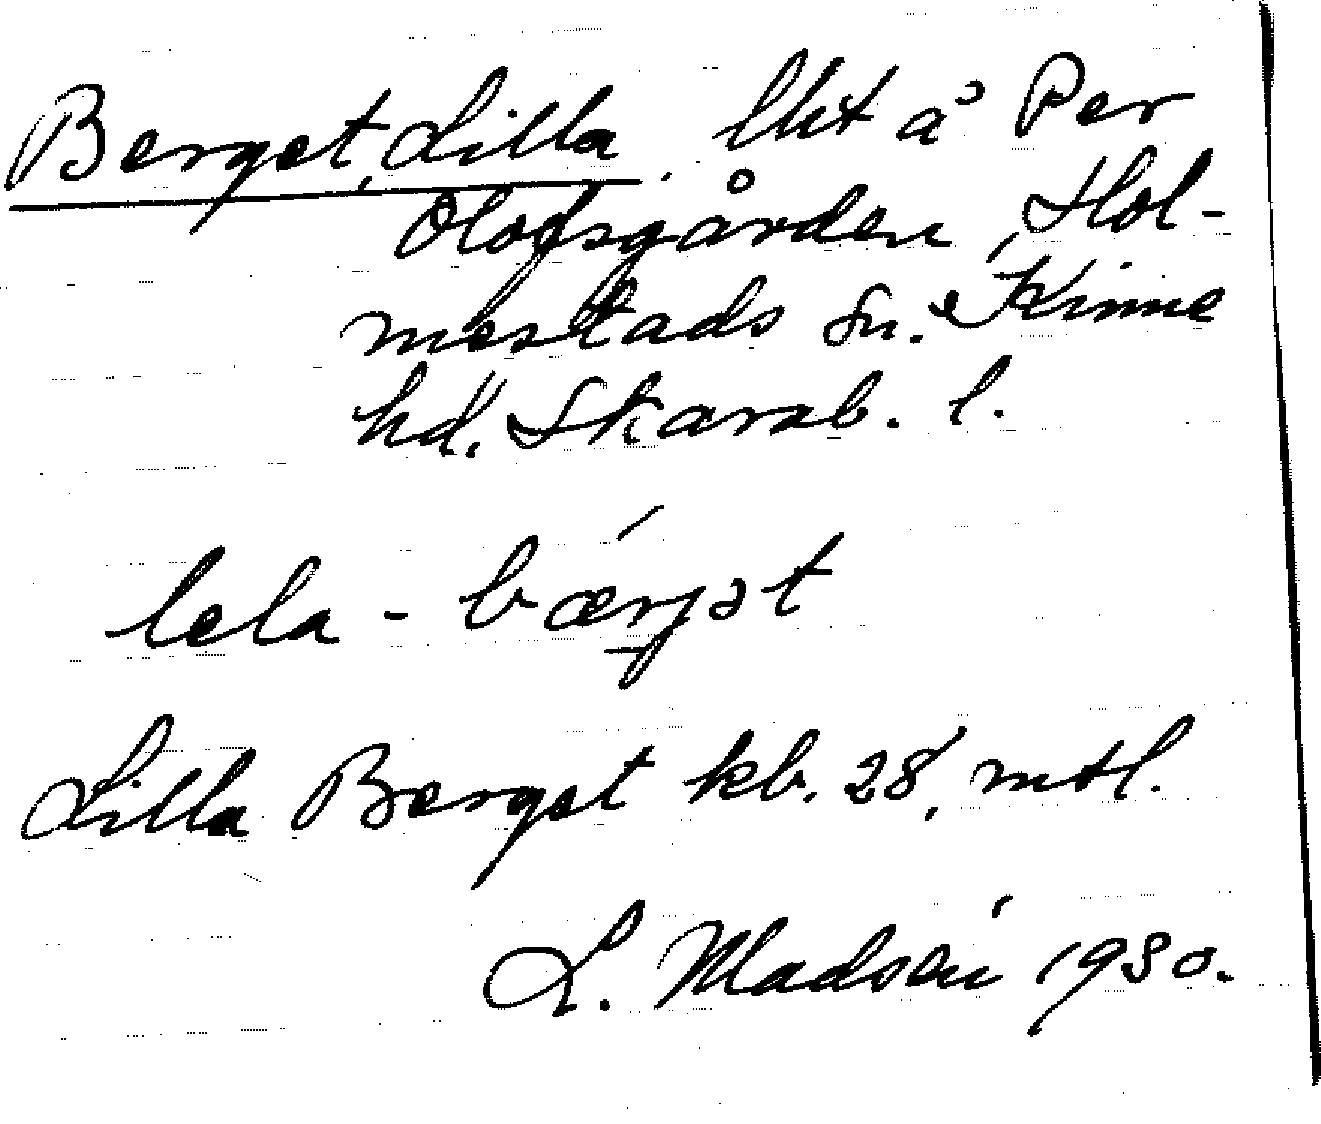 Berget, Lilla. lht å Per
Olofsgården, Hol-
mestads sn. Kinne
hd. Skarab. l.
lela - bærjət
Lilla Berget kb. 28, mtl.
L. Madsén 1930.